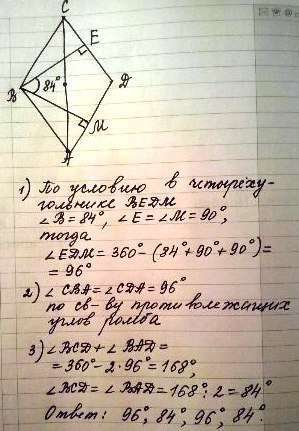 C
E
B
84°
D
M
A
1) По условию в четыреху-
гольнике BEDM
∠B = 84°, ∠E = ∠M = 90°,
тогда
∠EDM = 360° - (84° + 90° + 90°) =
= 96°
2) ∠CBA = ∠CDA = 96°
по св-ву противолежащих
углов ромба
3) ∠BCD + ∠BAD =
= 360° - 2·96° = 168°,
∠BCD = ∠BAD = 168° : 2 = 84°
Ответ: 96°, 84°, 96°, 84°.